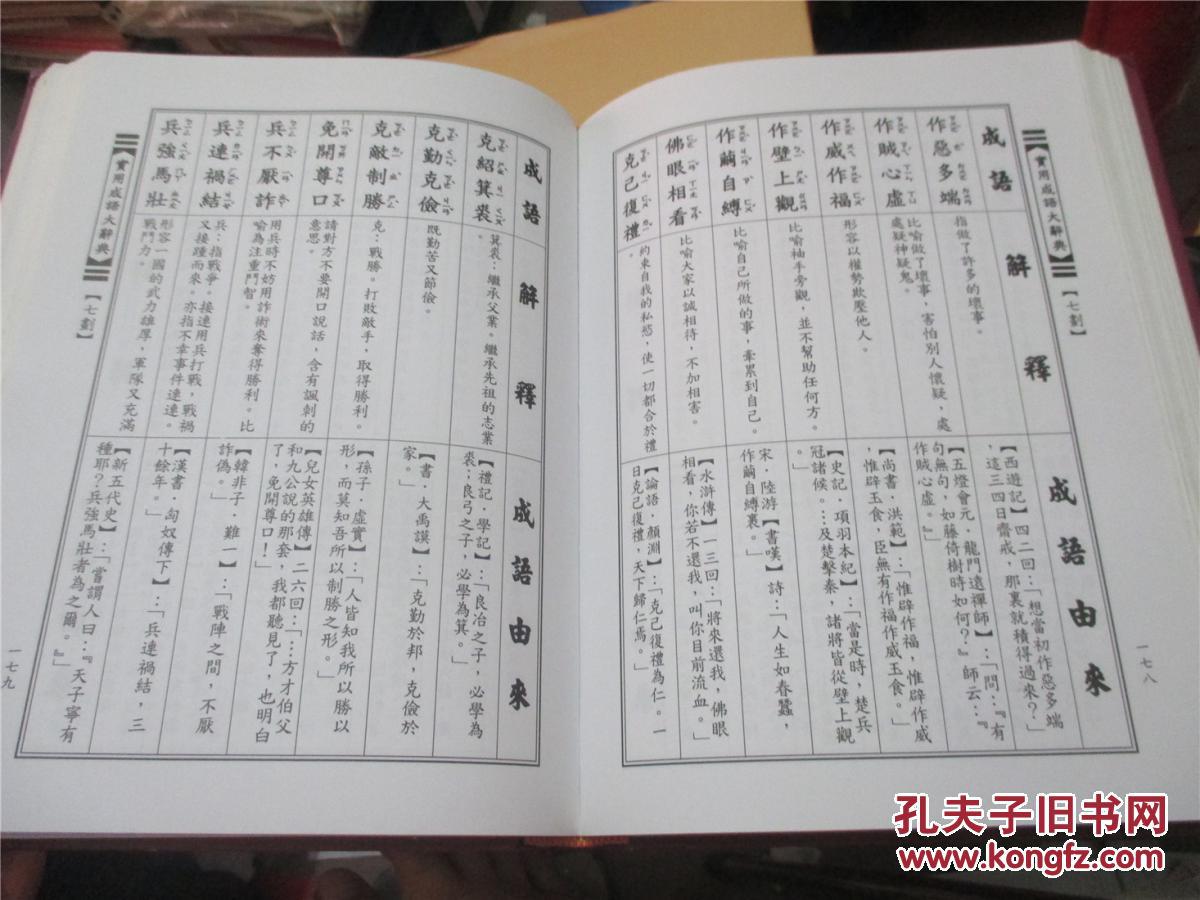 【實用成語大辭典】
【七劃】
成語
解釋
成語由來
作惡多端
指做了許多的壞事。
【西遊記】四二回：「想當初作惡多端
，這三四日齋戒，那裏就積得過來？」
作賊心虛
比喻做了壞事，害怕別人懷疑，處
處疑神疑鬼。
【五燈會元．龍門遠禪師】：「問：『有
句無句，如藤倚樹時如何？』師云：『
作賊心虛。』」
作威作福
形容以權勢欺壓他人。
【尚書．洪範】：「惟辟作福，惟辟作威
，惟辟玉食，臣無有作福作威玉食。」
作壁上觀
比喻袖手旁觀，並不幫助任何方。
【史記．項羽本紀】：「當是時，楚兵
冠諸侯。…及楚擊秦，諸將皆從壁上觀
。」
作繭自縛
比喻自己所做的事，牽累到自己。
宋．陸游【書嘆】詩：「人生如春蠶，
作繭自縛裹。」
佛眼相看
比喻大家以誠相待，不加相害。
【水滸傳】一三回：「將來還我，佛眼
相看，你若不還我，叫你目前流血。」
克己復禮
約束自我的私慾，使一切都合於禮
。
【論語．顏淵】：「克己復禮為仁。一
日克己復禮，天下歸仁焉。」
一七八
成語
解釋
成語由來
克紹箕裘
箕裘：繼承父業。繼承先祖的志業
。
【禮記．學記】：「良冶之子，必學為
裘；良弓之子，必學為箕。」
克勤克儉
既勤苦又節儉。
【書．大禹謨】：「克勤於邦，克儉於
家。」
克敵制勝
克：戰勝。打敗敵手，取得勝利。
【孫子．虛實】：「人皆知我所以勝以
形，而莫知吾所以制勝之形。」
免開尊口
請對方不要開口說話，含有諷刺的
意思。
【兒女英雄傳】二六回：「…方才伯父
和九公說的那套，我都聽見了，也明白
了，免開尊口！」
兵不厭詐
用兵時不妨用詐術來奪得勝利。比
喻為注重鬥智。
【韓非子．難一】：「戰陣之間，不厭
詐偽。」
兵連禍結
兵：指戰爭。接連用兵打戰，戰禍
又接踵而來。亦指不幸事件連連。
【漢書．匈奴傳下】：「兵連禍結，三
十餘年。」
兵強馬壯
形容一國的武力雄厚，軍隊又充滿
戰鬥力。
【新五代史】：「嘗謂人曰：『天子寧有
種耶？兵強馬壯者為之爾。』」
【實用成語大辭典】
【七劃】
一七九
孔夫子旧书网
www.kongfz.com